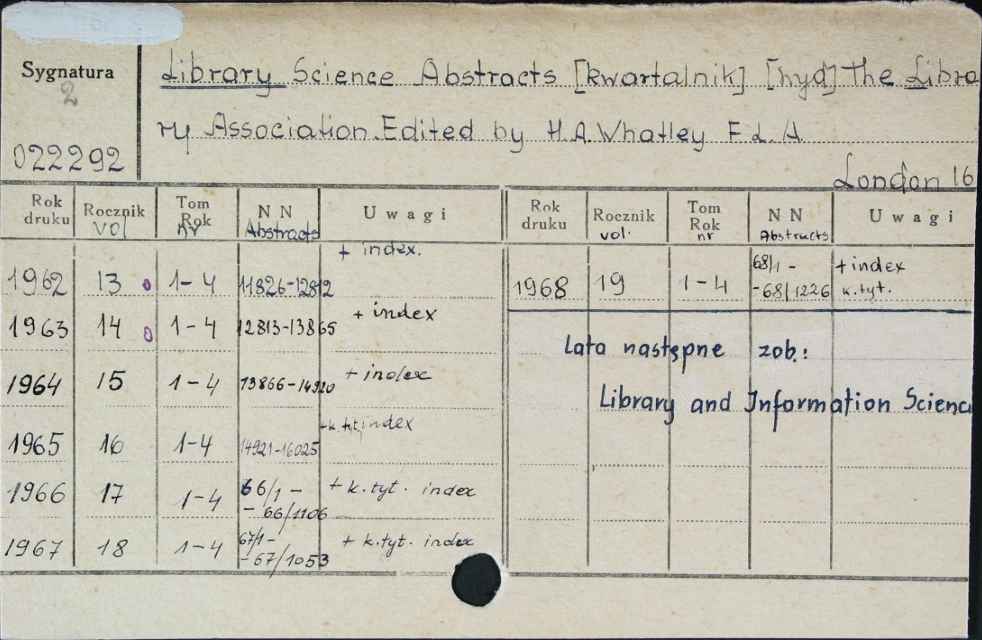 Sygnatura
2
022292
Library Science Abstracts [kwartalnik] [wyd] The Libra
ry Association. Edited by H.A. Whatley F L A
London 16
Rok druku Rocznik vol Tom Rok nr N N Abstracts Uwagi
1962 13 1-4 11826-12812 + index.
1963 14 1-4 12813-13865 + index
1964 15 1-4 13866-14920 + index
1965 16 1-4 14921-16025 +k.tyt. index
1966 17 1-4 66/1 - - 66/1106 + k.tyt. index
1967 18 1-4 67/1- -67/1053 + k.tyt. index
Rok druku Rocznik vol. Tom Rok nr N N Abstracts Uwagi
1968 19 1-4 68/1 - -68/1226 +index k.tyt.
Lata następne zob.:
Library and Information Scienc